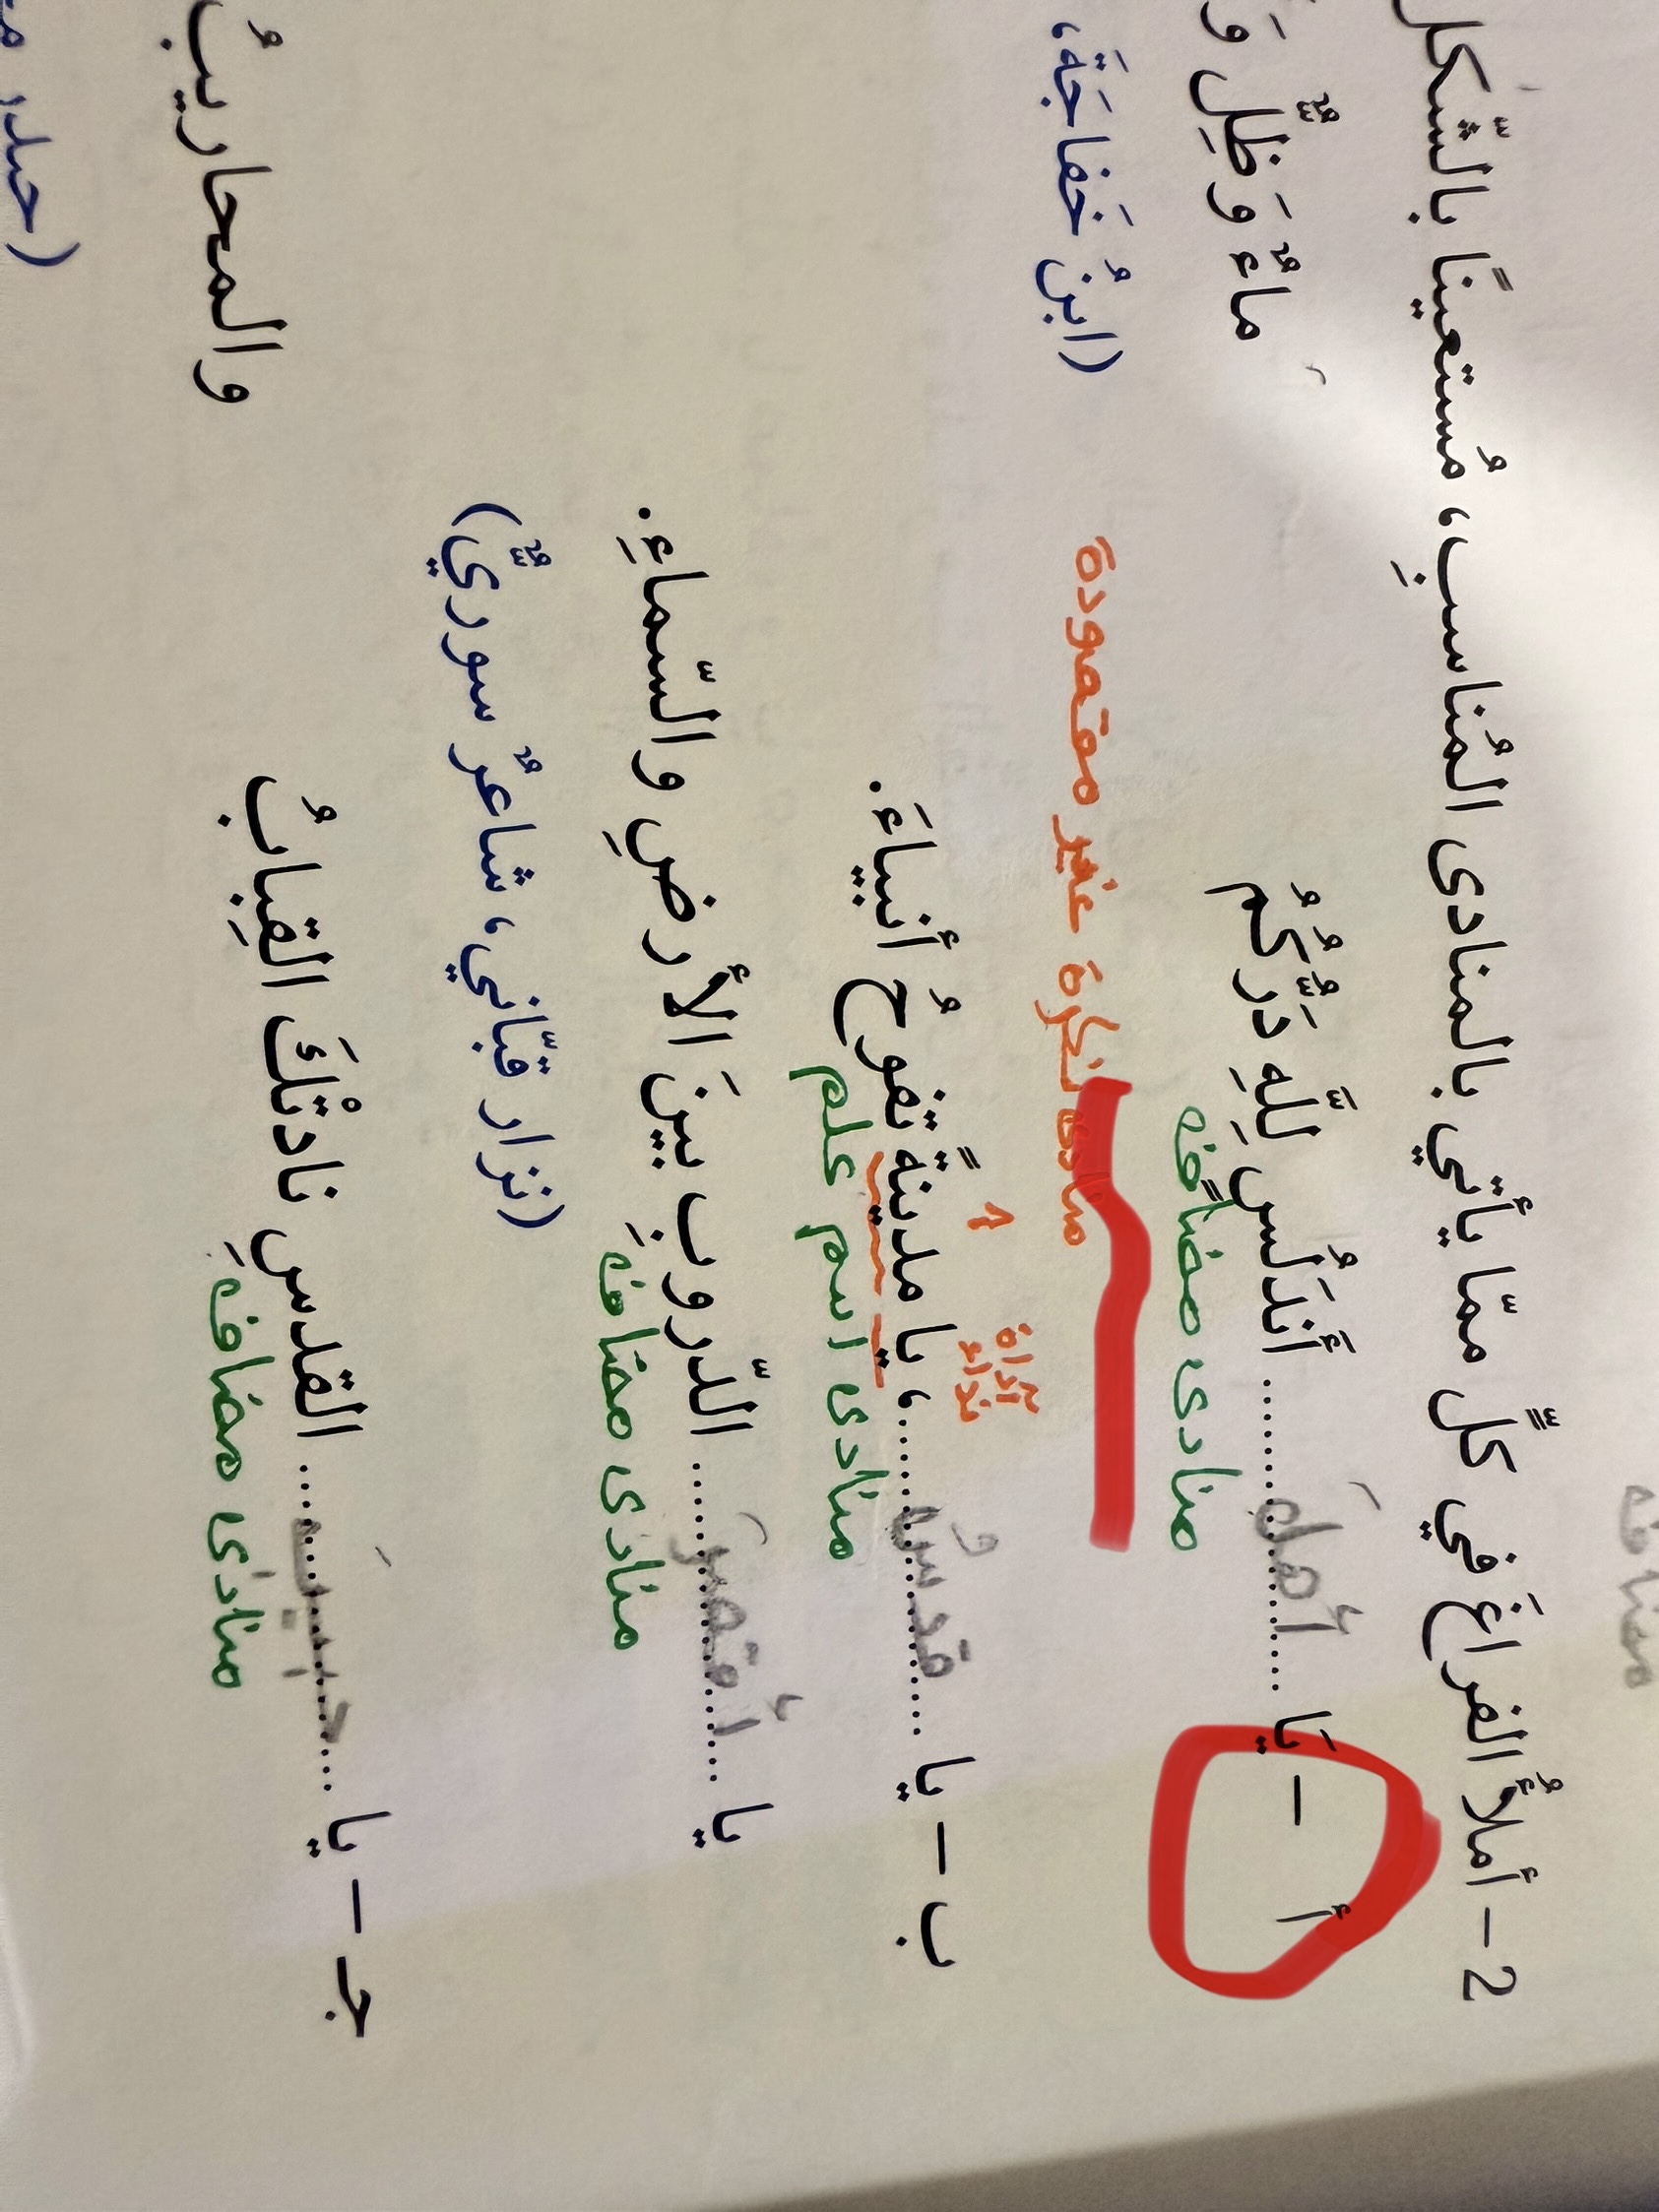 2 - أملأُ الفراغَ في كلٍّ ممّا يأتي بالمنادى المُناسبِ، مُستعينًا بالشّكل
أ - يَا ....أهلَ.... أَندَلُسٍ لِلّهِ دَرُّكُمُ ماءٌ وَظِلٌّ وَ
منادى مضاف
منادى نكرة غير مقصودة (ابنُ خَفاجَةَ،
أداة
نداء
ب - يا ....قدسُ....، يا مدينةً تفوحُ أنبياءَ.
منادى اسم علم
يا ....أقصرَ.... الدّروبِ بينَ الأرضِ والسّماءِ.
منادى مضاف
(نزار قبّاني، شاعرٌ سوريٌّ)
جـ - يا ........ القدسِ نادتْكَ القِبابُ والمحاريبُ
منادى مضاف
مضاف